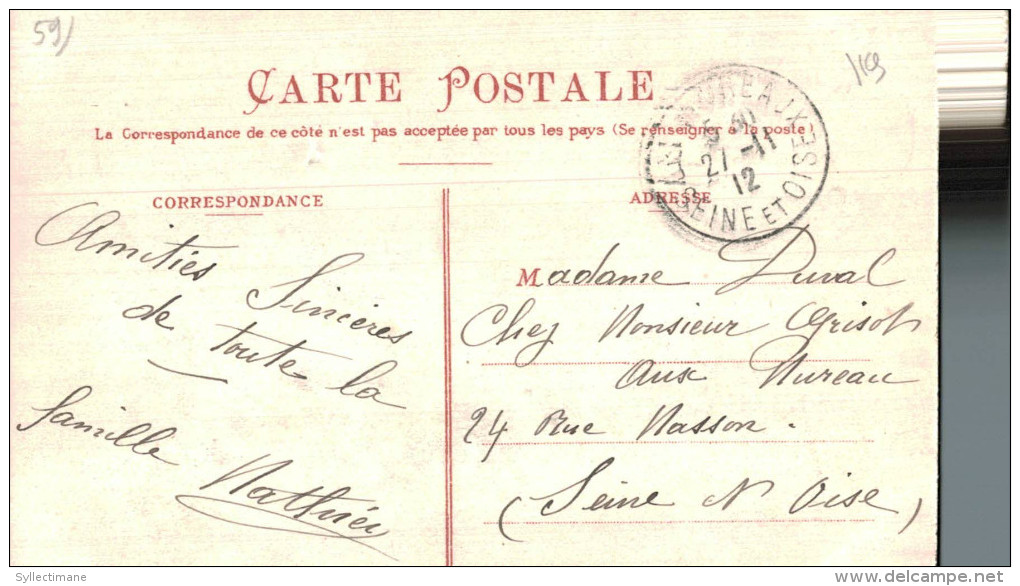 59)
CARTE POSTALE
La Correspondance de ce côté n'est pas acceptée par tous les pays (Se renseigner à la poste)
CORRESPONDANCE
ADRESSE
UREAUX
27 -11
12
SEINE ET OISE
Amitiés Sincères
de toute la
famille
Mathieu
Madame Duval
Chez Monsieur Grisot
Aux Mureau
24 Rue Masson.
(Seine N Oise)
Syllectimane
delcampe.net